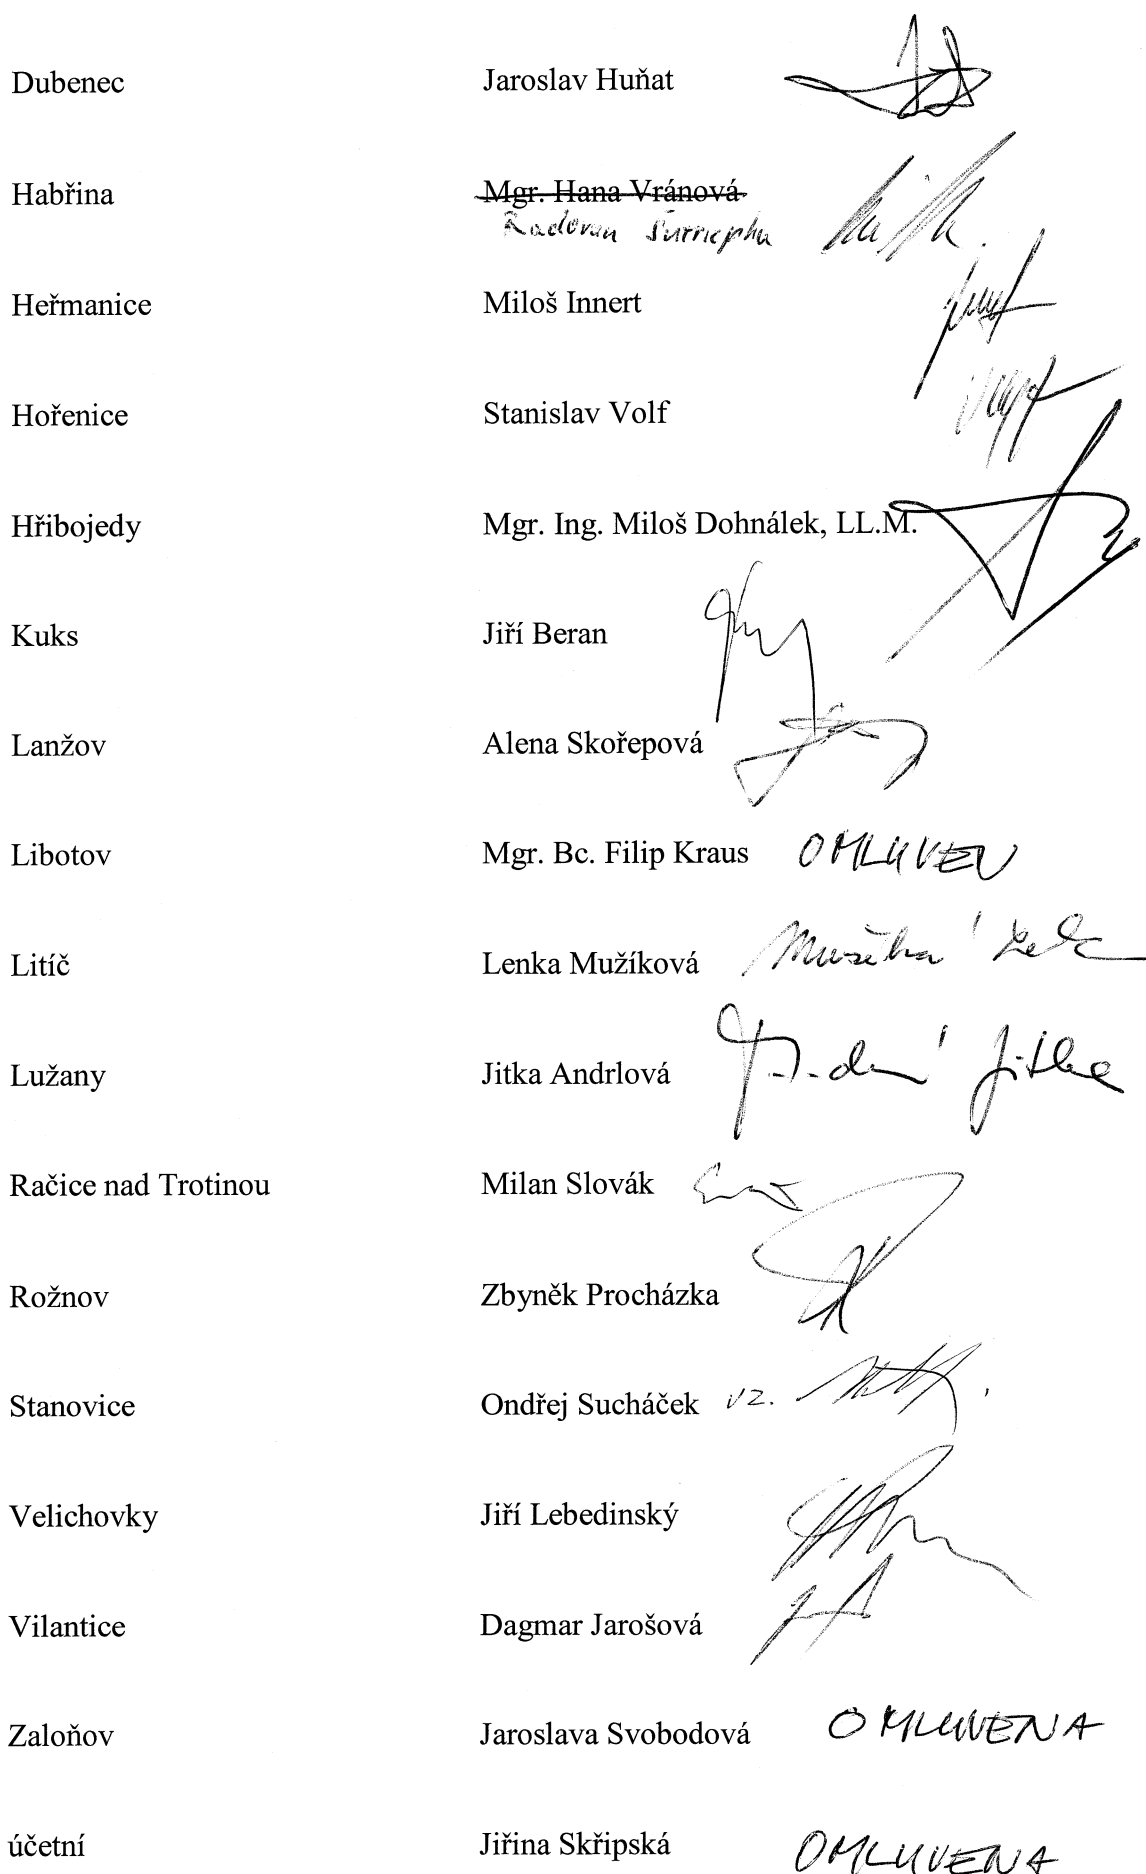 Dubenec Jaroslav Huňat
Habřina Mgr. Hana Vránová
Radovan
Heřmanice Miloš Innert
Hořenice Stanislav Volf
Hřibojedy Mgr. Ing. Miloš Dohnálek, LL.M.
Kuks Jiří Beran
Lanžov Alena Skořepová
Libotov Mgr. Bc. Filip Kraus OMLUVEN
Litíč Lenka Mužíková
Lužany Jitka Andrlová Jitka
Račice nad Trotinou Milan Slovák
Rožnov Zbyněk Procházka
Stanovice Ondřej Sucháček vz.
Velichovky Jiří Lebedinský
Vilantice Dagmar Jarošová
Zaloňov Jaroslava Svobodová OMLUVENA
účetní Jiřina Skřipská OMLUVENA